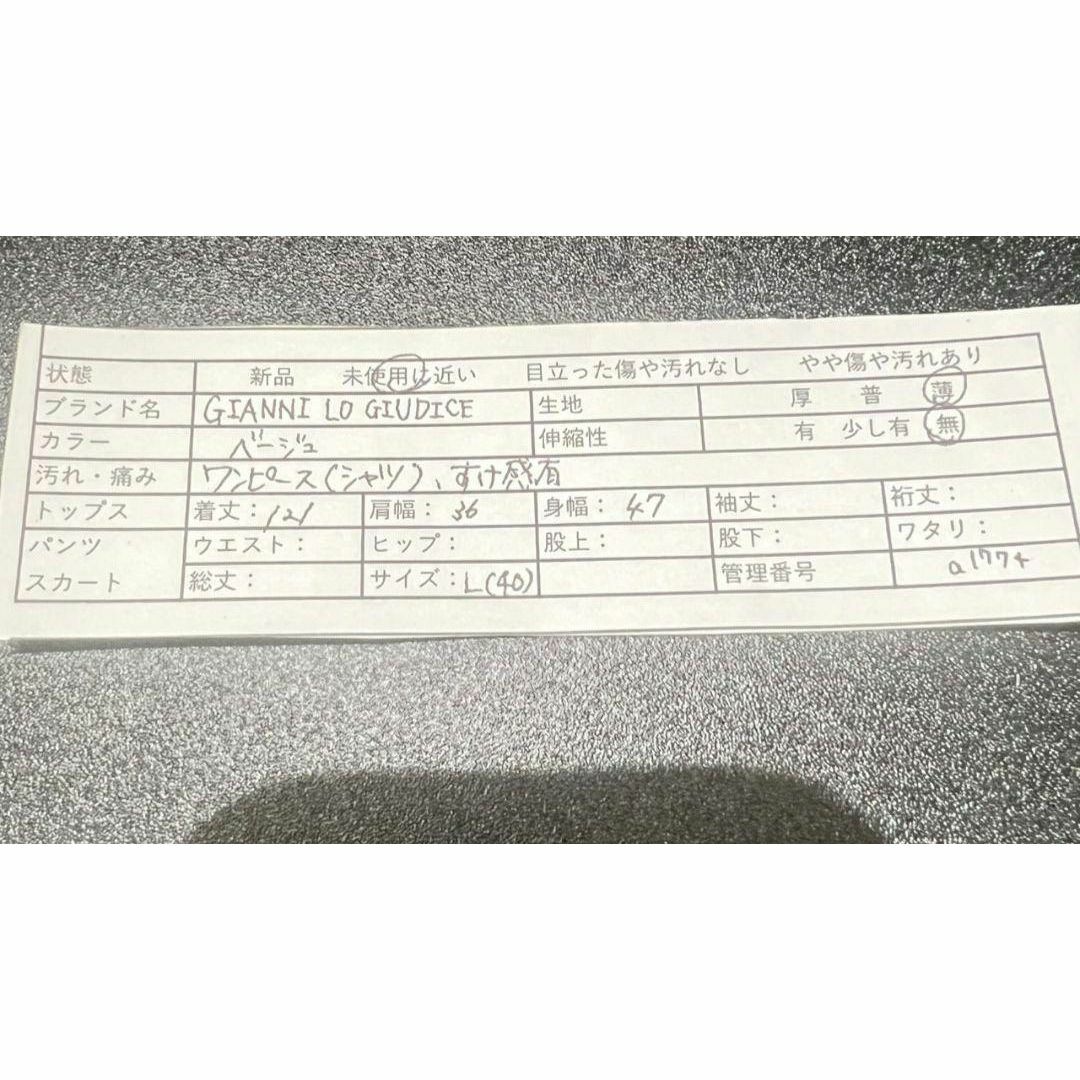 状態 新品 未使用に近い 目立った傷や汚れなし やや傷や汚れあり
ブランド名 GIANNI LO GIUDICE 生地 厚 普 薄
カラー ベージュ 伸縮性 有 少し有 無
汚れ・痛み ワンピース(シャツ)、すけ感有
トップス 着丈：121 肩幅：36 身幅：47 袖丈： 裄丈：
パンツ ウエスト： ヒップ： 股上： 股下： ワタリ：
スカート 総丈： サイズ：L(40) 管理番号